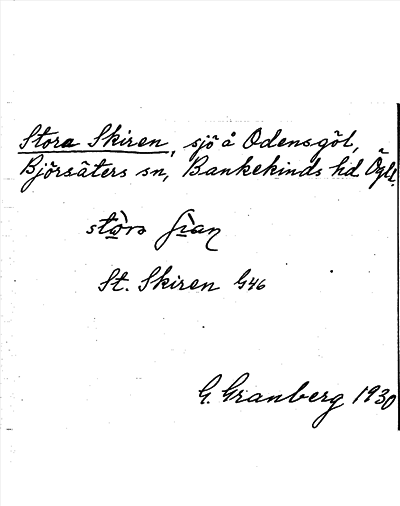 Stora Skiren, sjö å Odensgöl,
Björsäters sn, Bankekinds hd. Ögl.
St. Skiren G46
G. Granberg 1930